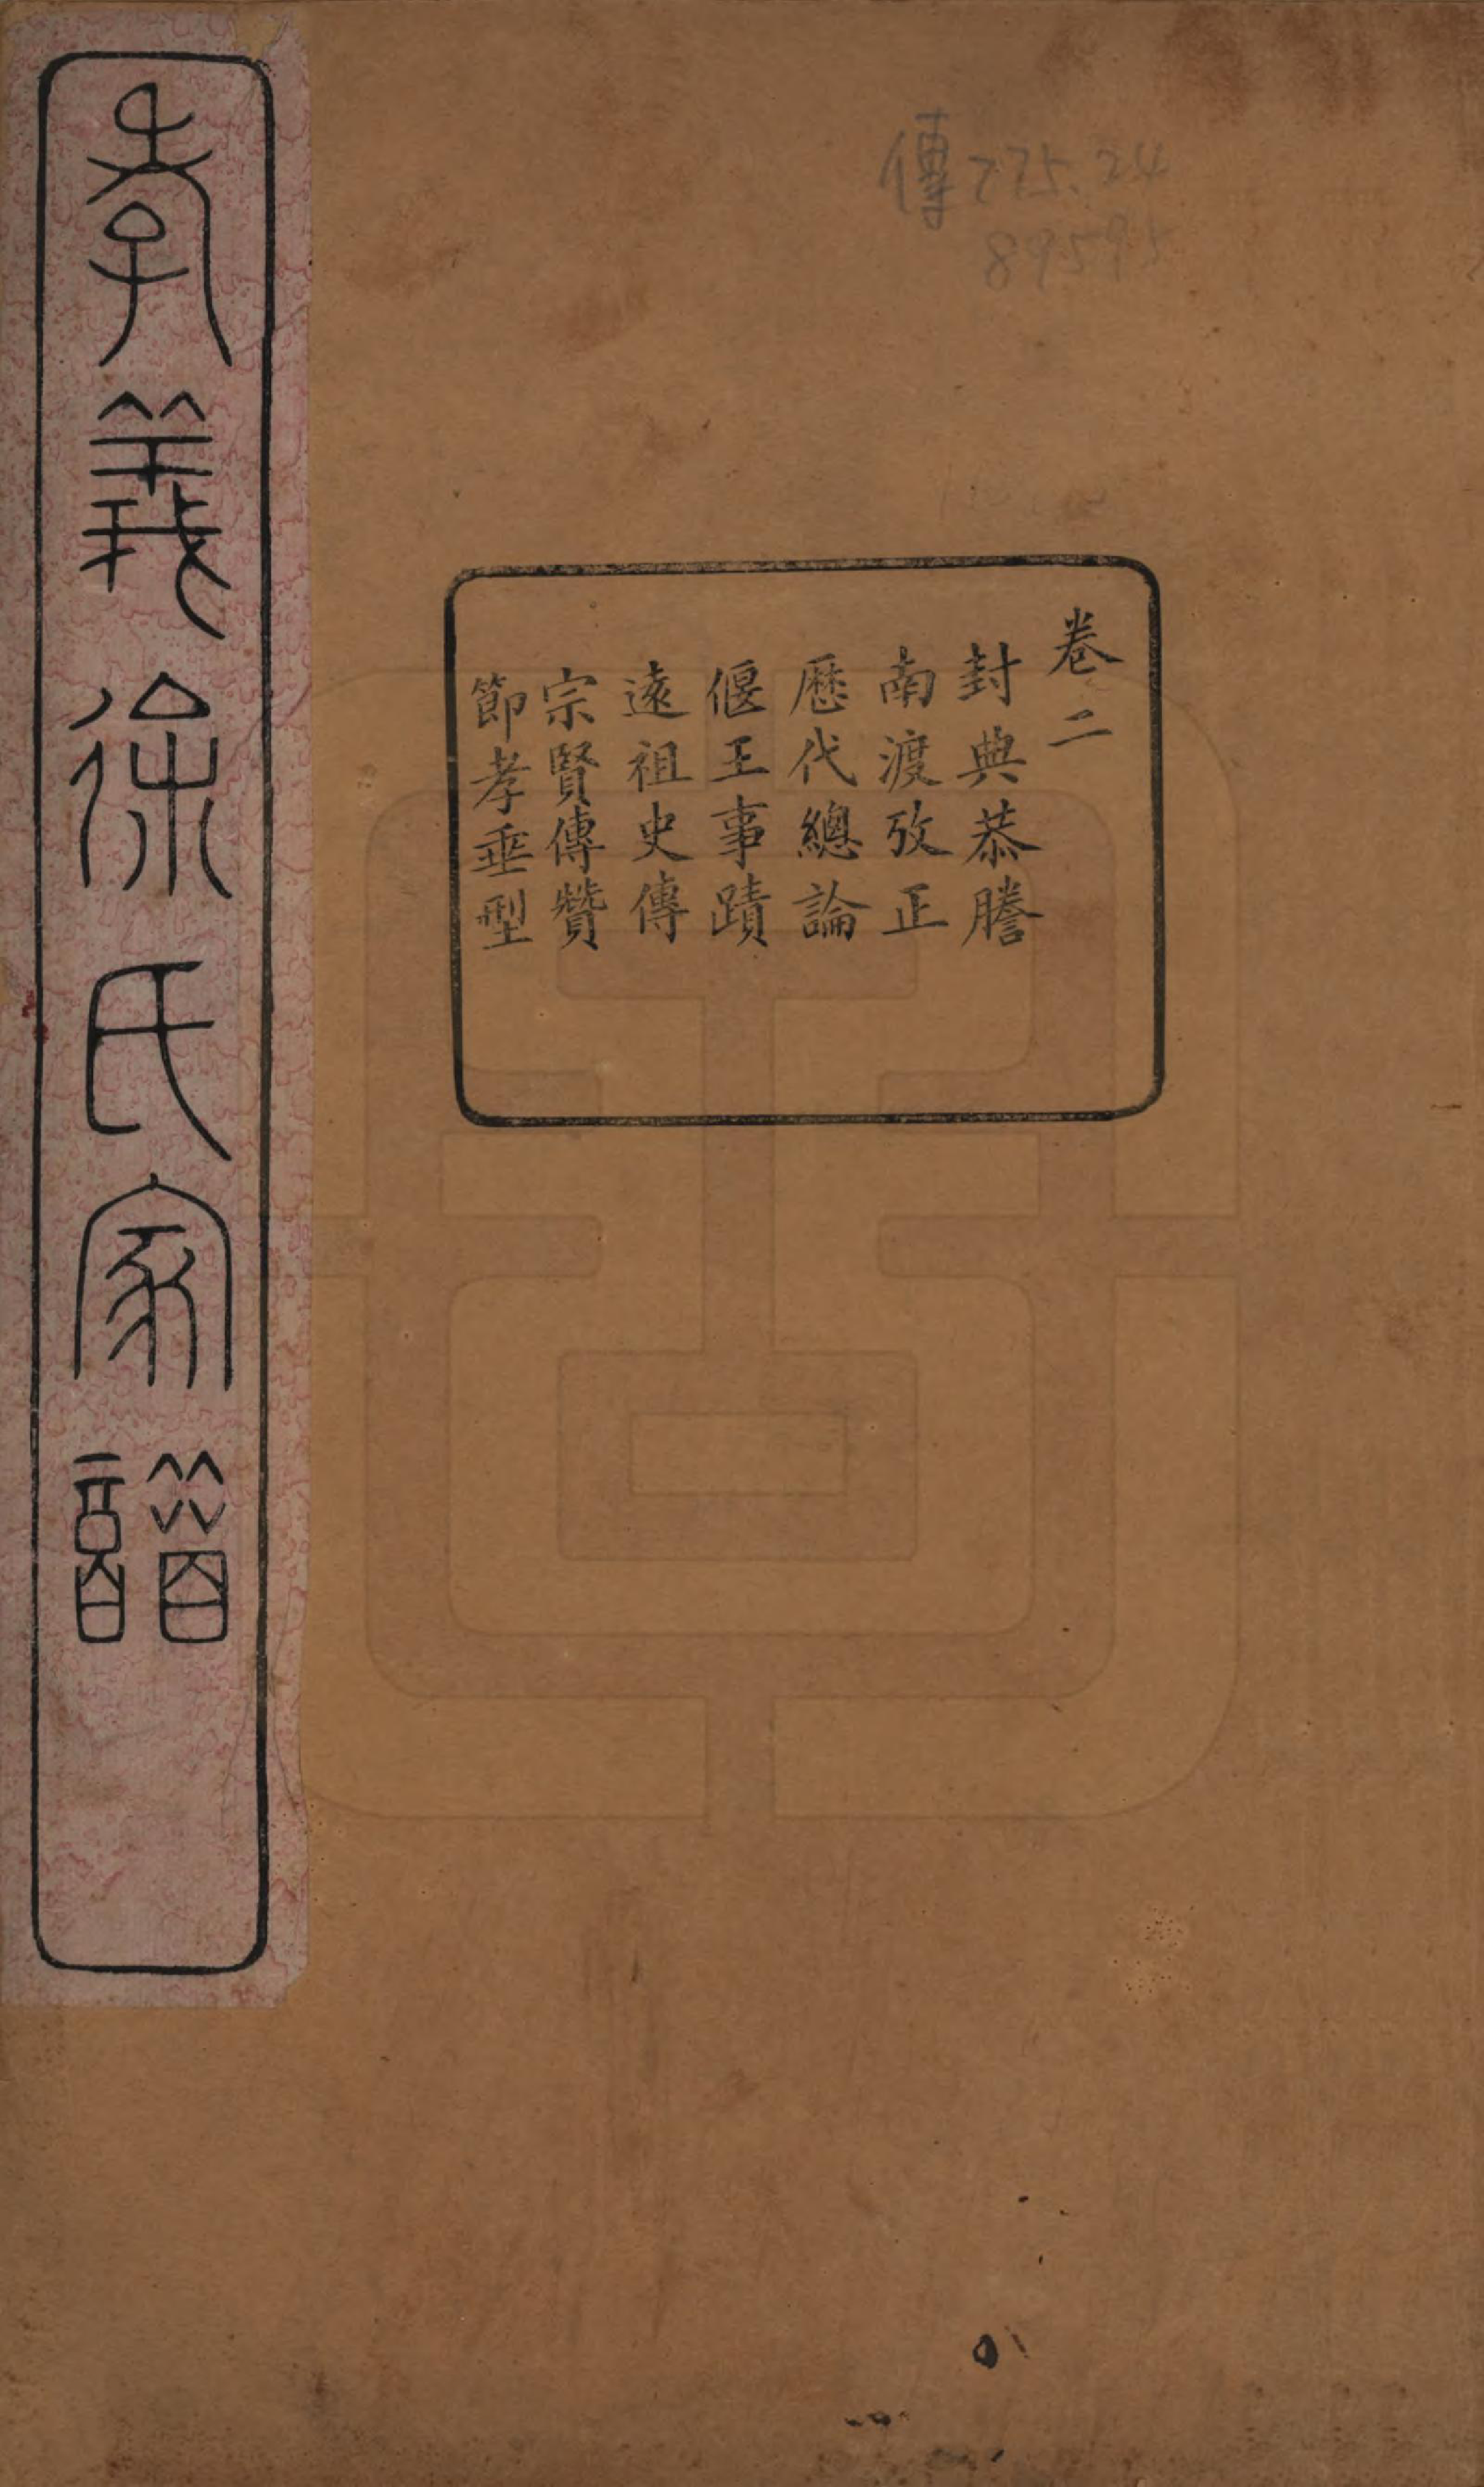 卷二
封典恭謄
南渡攷正
歷代總論
偃王事蹟
遠祖史傳
宗賢傳贊
節孝垂型
孝義徐氏家譜
傳775.24
89595